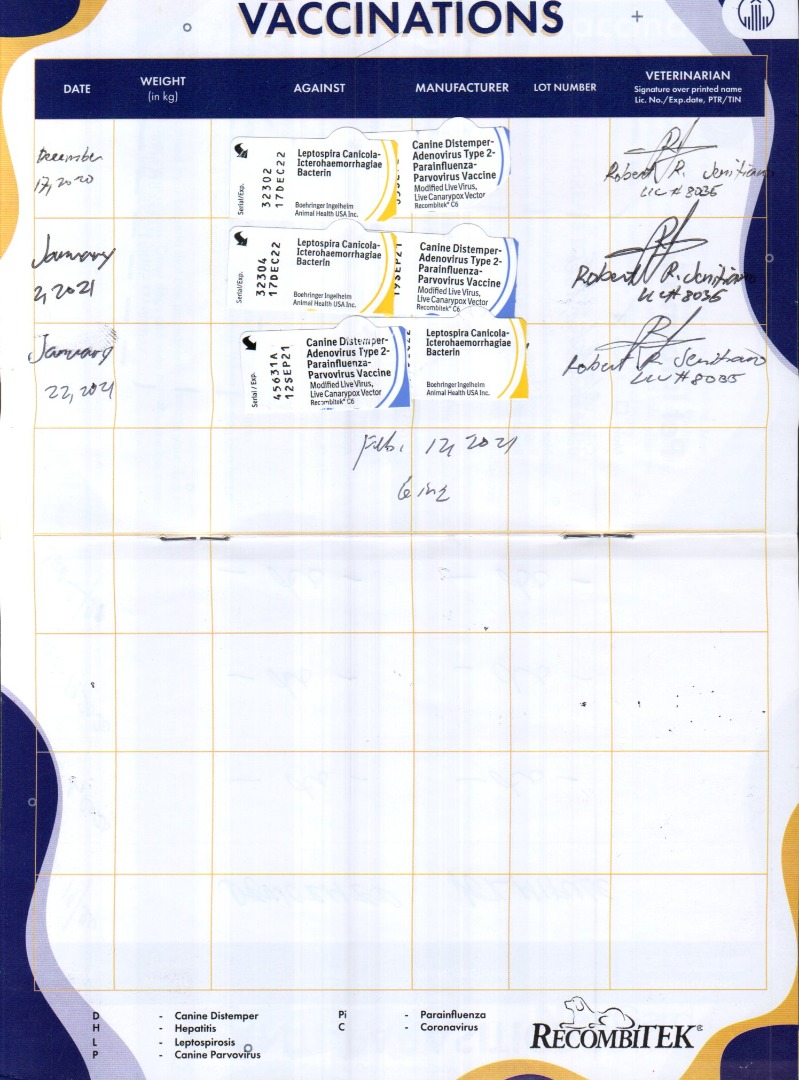 VACCINATIONS
DATE
WEIGHT
(in kg)
AGAINST
MANUFACTURER
LOT NUMBER
VETERINARIAN
Signature over printed name
Lic. No./Exp.date, PTR/TIN
December
17, 2020
Serial/Exp.
32302
17DEC22
Leptospira Canicola-
Icterohaemorrhagiae
Bacterin
Boehringer Ingelheim
Animal Health USA Inc.
Canine Distemper-
Adenovirus Type 2-
Parainfluenza-
Parvovirus Vaccine
Modified Live Virus,
Live Canarypox Vector
Recombitek® C6
Robert R.
LIC # 8035
January
2, 2021
Serial/Exp.
32304
17DEC22
Leptospira Canicola-
Icterohaemorrhagiae
Bacterin
Boehringer Ingelheim
Animal Health USA Inc.
19SEP21
Canine Distemper-
Adenovirus Type 2-
Parainfluenza-
Parvovirus Vaccine
Modified Live Virus,
Live Canarypox Vector
Recombitek® C6
Robert R.
LIC # 8035
January
22, 2021
Serial / Exp.
45631A
12SEP21
Canine Distemper-
Adenovirus Type 2-
Parainfluenza-
Parvovirus Vaccine
Modified Live Virus,
Live Canarypox Vector
Recombitek® C6
Leptospira Canicola-
Icterohaemorrhagiae
Bacterin
Boehringer Ingelheim
Animal Health USA Inc.
Robert R.
LIC # 8035
Feb. 12, 2021
6 in 1
D - Canine Distemper
H - Hepatitis
L - Leptospirosis
P - Canine Parvovirus
Pi - Parainfluenza
C - Coronavirus
RECOMBITEK®